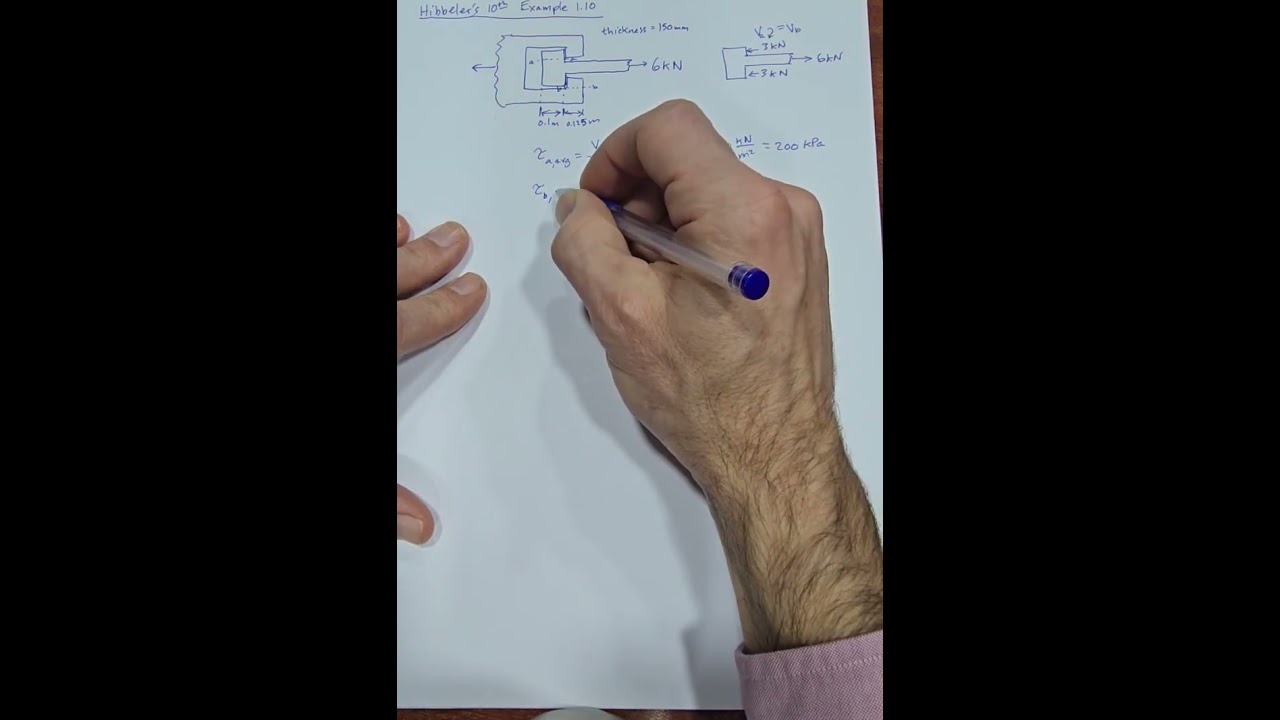 Hibbeler's 10th Example 1.10
thickness = 150mm
a
6kN
b
0.1m 0.125m
= Vb
3kN
6kN
3kN
τa,avg = V kN/m² = 200 kPa
τb,